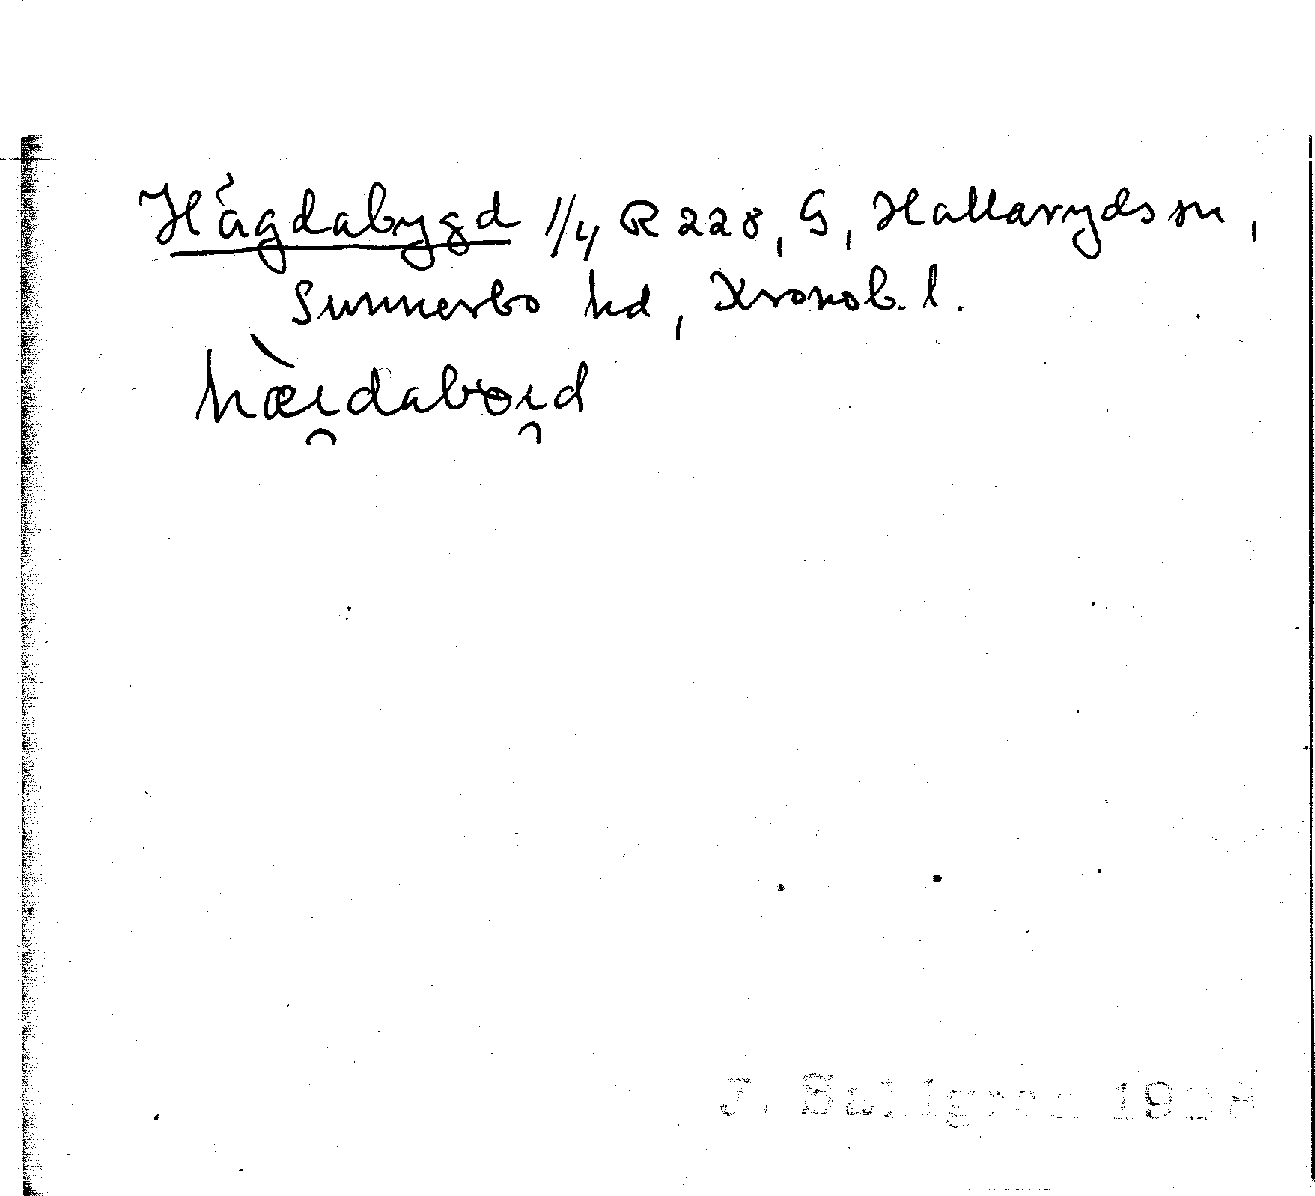 Hägdabygd 1/4 R 228, G, Hallaryds sn,
Sunnerbo hd, Kronob. l.
hæ̀i̯dabo̵i̯d
J. Sahlgren 1928